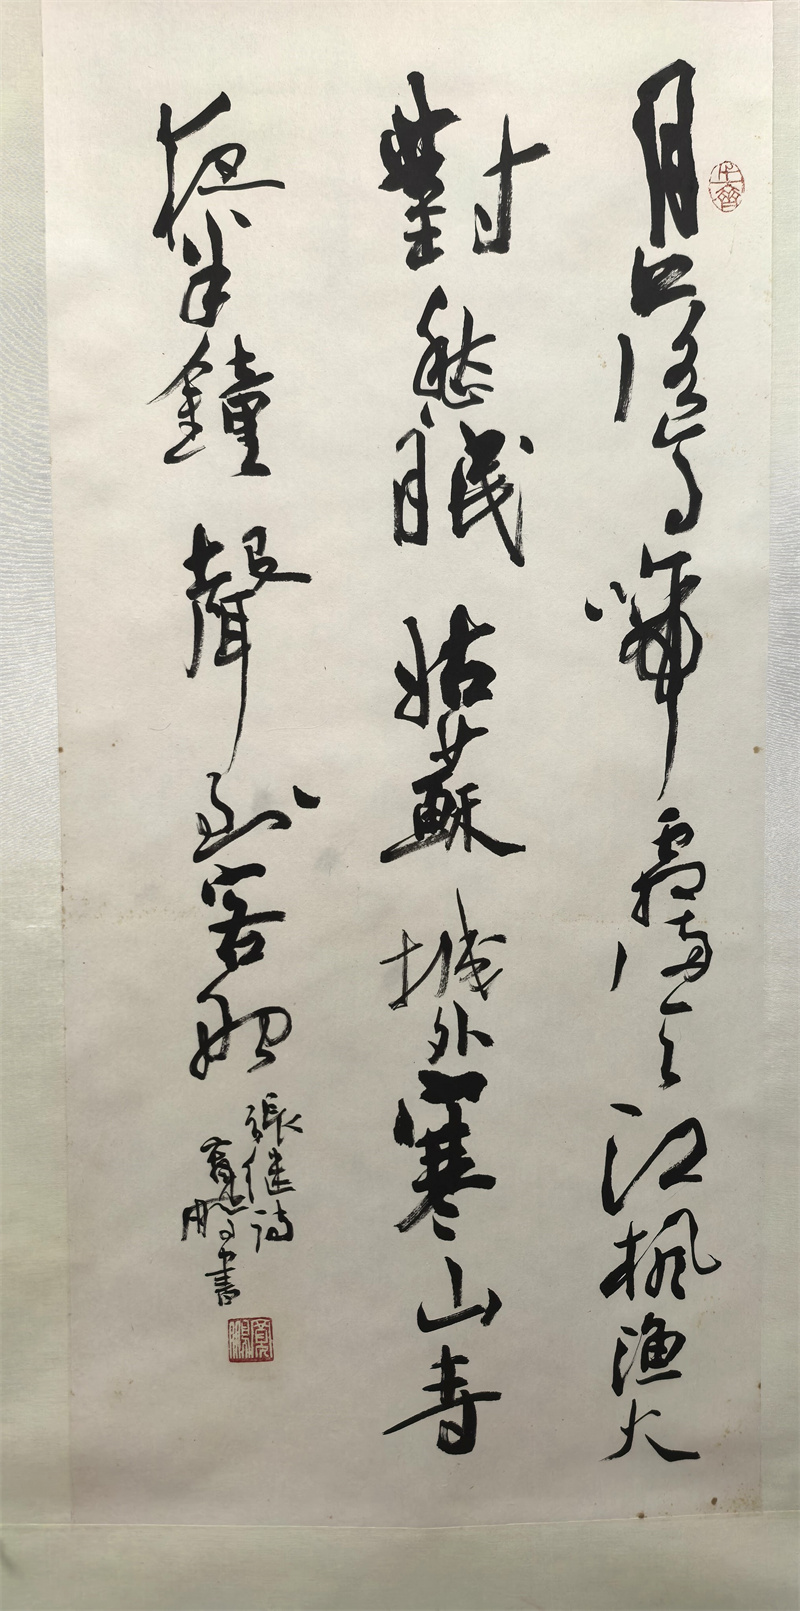 月落烏啼霜滿天江楓渔火
對愁眠姑蘇城外寒山寺
夜半鐘聲到客船
張继詩
鵬書